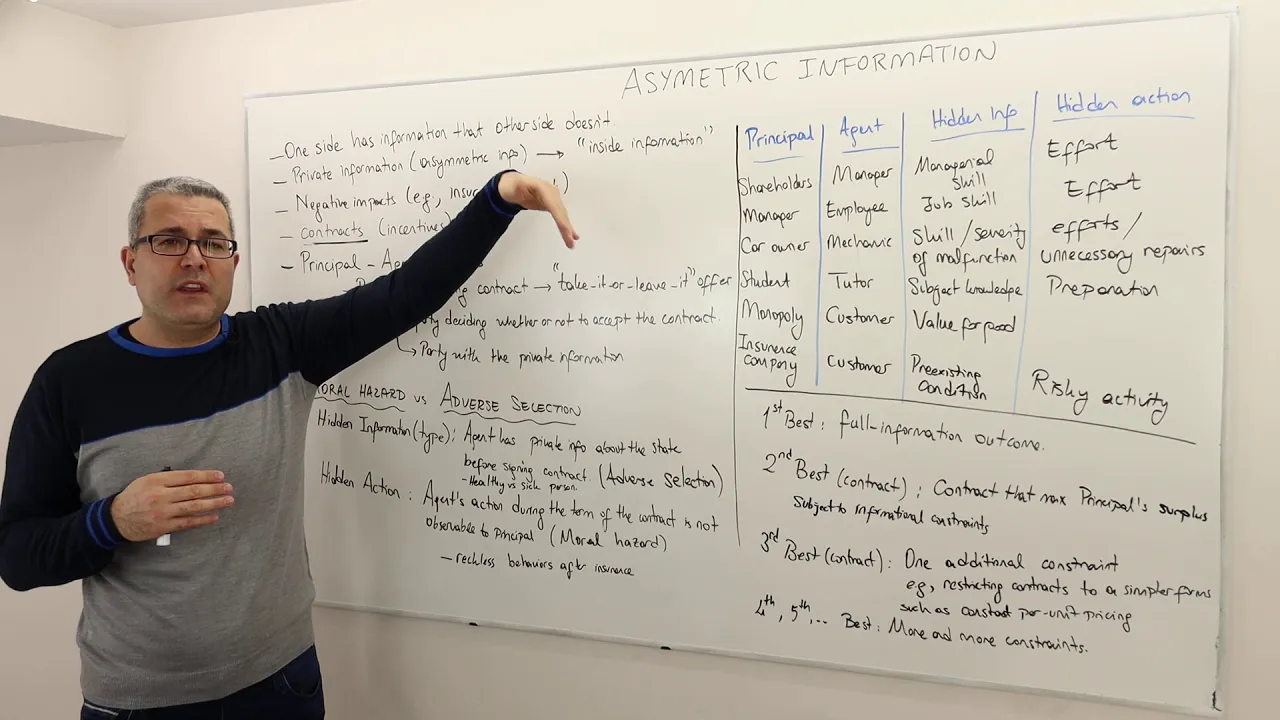 ASYMETRIC INFORMATION
– One side has information that other side doesn't
– Private information (asymmetric info) → "inside information"
– Negative impacts (e.g., )
– contracts (incentives)
– Principal –
contract → "take-it-or-leave-it" offer
deciding whether or not to accept the contract.
↳ Party with the private information
HAZARD vs ADVERSE SELECTION
Hidden Information (type): Agent has private info about the state
before signing contract. (Adverse Selection)
- Healthy vs sick person.
Hidden Action : Agent's action during the term of the contract is not
observable to principal (Moral hazard)
– reckless behaviors after insurence
Principal Agent Hidden Info Hidden action
Shareholders Manager Managerial Skill Effort
Manager Employee Job skill Effort
Car owner Mechanic Skill / severity of malfunction efforts / unnecessary repairs
Student Tutor Subject knowledge Preparation
Monopoly Customer Value for good
Insurence company Customer Preexisting Condition Risky activity
1st Best : full-information outcome.
2nd Best (contract) : Contract that max Principal's surplus
Subject to informational constraints
3rd Best (contract) : One additional constraint
e.g, restricting contracts to a simpler forms
such as constant per-unit pricing
4th, 5th, .. Best : More and more constraints.